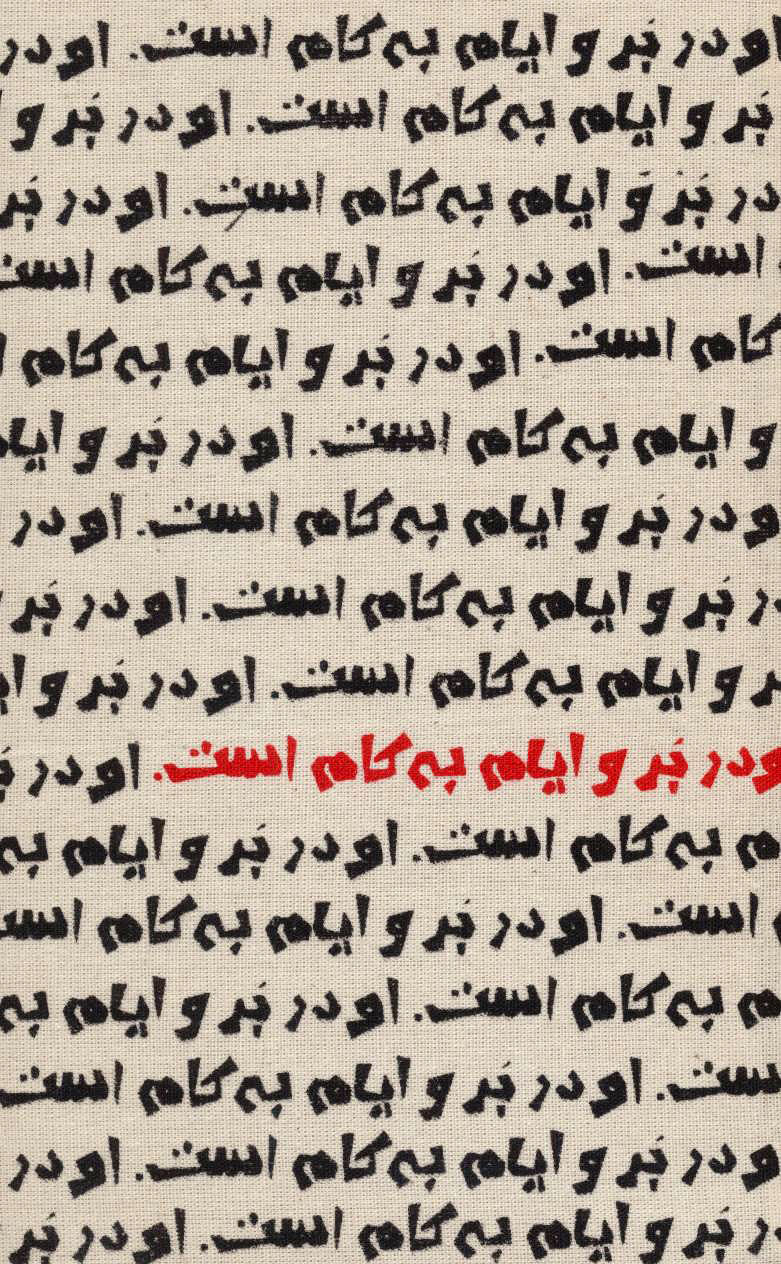 او در بَر و ایام به کام است. او در
بَر و ایام به کام است. او در بَر و
در بَر و ایام به کام است. او در بَر
است. او در بَر و ایام به کام است
کام است. او در بَر و ایام به کام
و ایام به کام است. او در بَر و ایام
و در بَر و ایام به کام است. او در
ر بَر و ایام به کام است. او در بَر
ر و ایام به کام است. او در بَر و ای
و در بَر و ایام به کام است. او در بَر
م به کام است. او در بَر و ایام به
است. او در بَر و ایام به کام است
م به کام است. او در بَر و ایام به
ست. او در بَر و ایام به کام است
و در بَر و ایام به کام است. او در
ر بَر و ایام به کام است. او در بَر